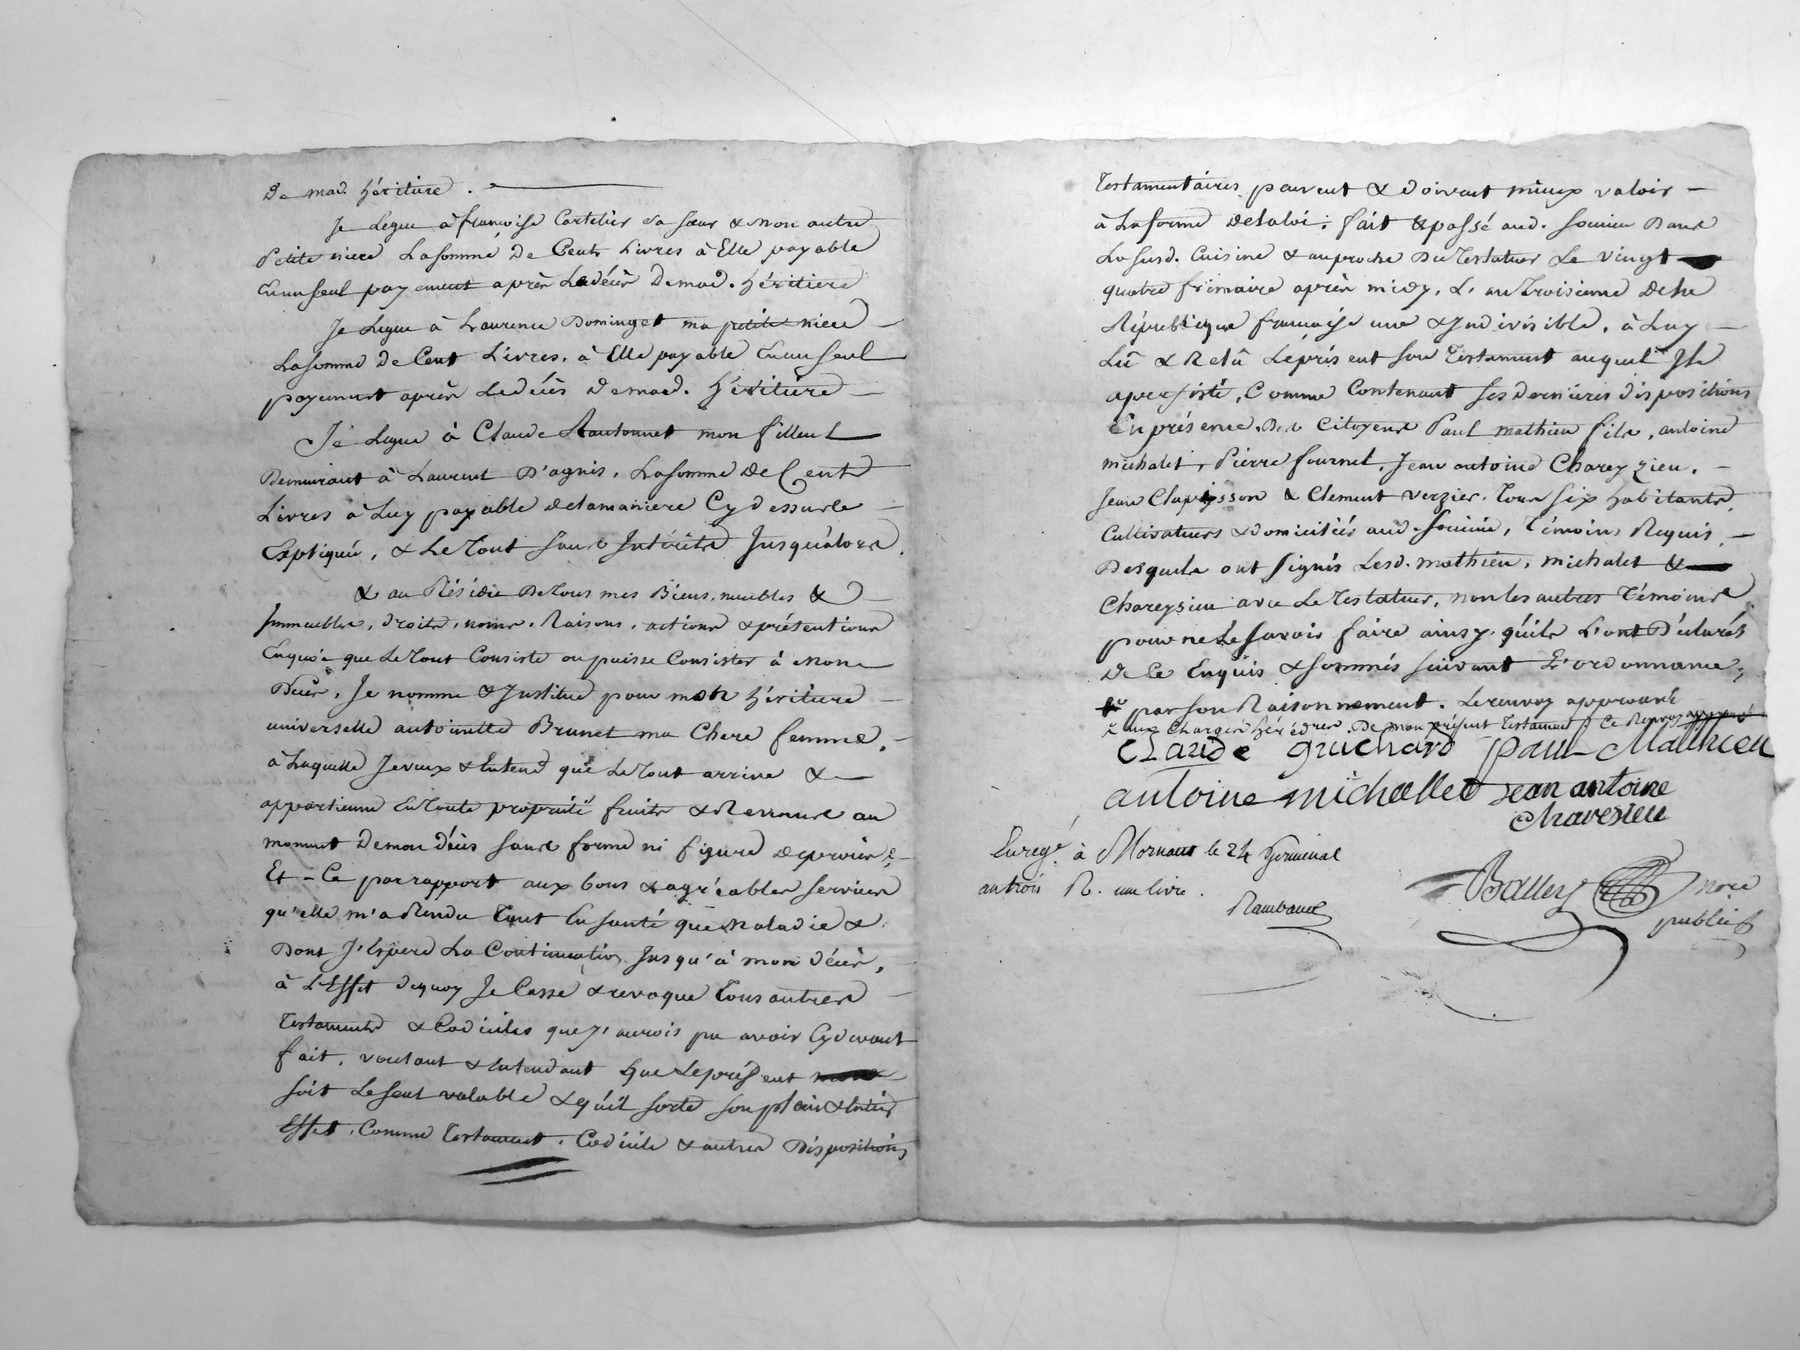 De mad. héritiere.
Je Legue à françoise Cartelier sa sœur & mon autre
Petite niece Lasomme De Cents Livres à Elle payable
Enunseul payement après Ledécès Demad. héritiere
Je Legue à Laurence Dominget ma petite niece
Lasomme De Cent Livres, à Elle payable Enunseul
payement après Ledécès Demad. héritière
Je Legue à Claude mon filleul
Demeurant à Laurent D'agnis, Lasomme De Cent
Livres à Luy payable delamaniere Cydessus
Expliqué, & LeTout Sans Intérêts Jusqu'alors.
& au Résidu DeTous mes Biens, meubles &
Immeubles, droits, noms, Raisons, actions & prétentions
Enquoi que LeTout Consiste oupuisse Consister à mon
Décès, Je nomme & Institue pour mon héritiere
universelle antoinette Brunet ma Chere femme,
à Laquelle Jeveux & Entend que LeTout arrive &
appartienne EnToute propriété fruits & Revenus au
moment Demon décès sans forme ni figure deprocès
Et - Ce parrapport aux bons & agréables services
qu'elle m'a Rendu Tant En santé que maladie &
Dont J'Espere La Continuation Jusqu'à mon décès,
à L'Effet dequoy Je Casse & revoque Tous autres
Testaments & Codiciles que J'aurois pu avoir Cydevant
fait, voulant & Entendant que Leprésent
soit Leseul valable & qu'il sorte son plein & Entier
Effet, Comme Testament, Codicile & autres Dispositions
Testamentaires peuvent & doivent mieux valoir
à Laforme delaloi : fait & passé aud. Soucieu Dans
La susd. Cuisine & auproche Du Testateur Le vingt
quatre frimaire après midy, L'anTroisieme Dela
République française une & Indivisible, à Luy
Lû & Relû Leprésent son Testament auquel Il
apersisté, Comme Contenant ses dernieres dispositions
En présence, Des Citoyens Paul mathieu fils, antoine
michalet, Pierre fournel, Jean antoine Chareyzieu,
Jean Clapisson & Clement verzier, Tous six habitants,
Cultivateurs & domiciliés aud. Soucieu, Témoins Requis,
Desquels ont signés Lesd. mathieu, michalet &
Chareysieu avec LeTestateur, non les autres Témoins
pour ne Lesavoir faire ainsy qu'ils L'ont Déclarés
De Ce Enquis & sommés suivant L'ordonnance,
par son Raisonnement. Lerenvoy approuvé
aux Charges héréd. De mon présent Testament Ce Renvoy approuvé
CLaude guichard paul Mathieu
antoine michallet Jean antoine
Charesieu
Enregé. à Mornant le 24 Germinal
an trois R. une livre.
Rambaud
Ballery nore
public